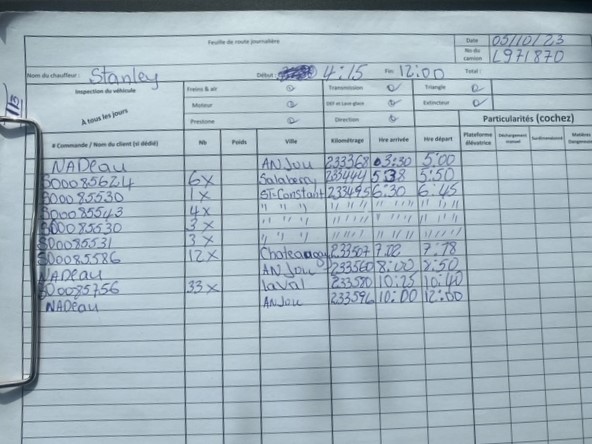 Feuille de route journalière
Date 05/10/23
No du camion L971870
Nom du chauffeur: Stanley Début: 4:15 Fin: 12:00 Total:
Inspection du véhicule
À tous les jours
Freins & air Transmission Triangle
Moteur Extincteur
Prestone Direction
Particularités (cochez)
# Commande / Nom du client (si dédié) Nb Poids Ville Kilométrage Hre arrivée Hre départ Plateforme élévatrice Déchargement manuel Matières Dangereuses
NADeau ANJou 233368 03:30 5:00
6x Salaberry 233444 5:50
S00085530 1x ST-Constant 233495 6:30 6:45
S00085543 4x " " " " " " " " " " " "
S00085530 3x
S00085531 3x " " " " " " " " " " " "
S00085586 12x 233507 7:02 7:18
NADeau ANJou 233560 8:00 8:50
S00085756 33x Laval 233580 10:25
NADeau ANJou 233596 10:00 12:00